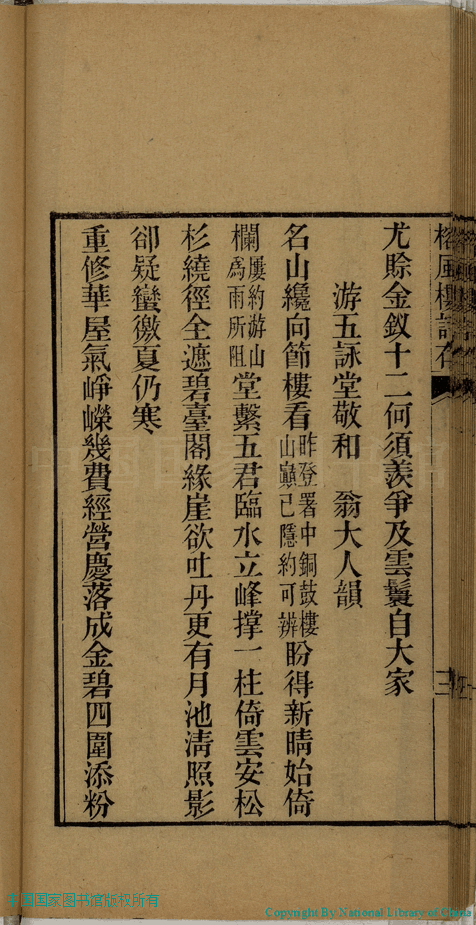 榕風樓詩存
三
尤賒金釵十二何須羨爭及雲鬟自大家
游五詠堂敬和　翁大人韻
名山纔向節樓看昨登署中銅鼓樓山巔已隱約可辨盼得新晴始倚
欄屢約游山為雨所阻堂繫五君臨水立峰撑一柱倚雲安松
杉繞徑全遮碧臺閣緣崖欲吐丹更有月池淸照影
卻疑蠻徼夏仍寒
重修華屋氣崢嶸幾費經營慶落成金碧四圍添粉
中国国家图书馆版权所有
Copyright By National Library of China